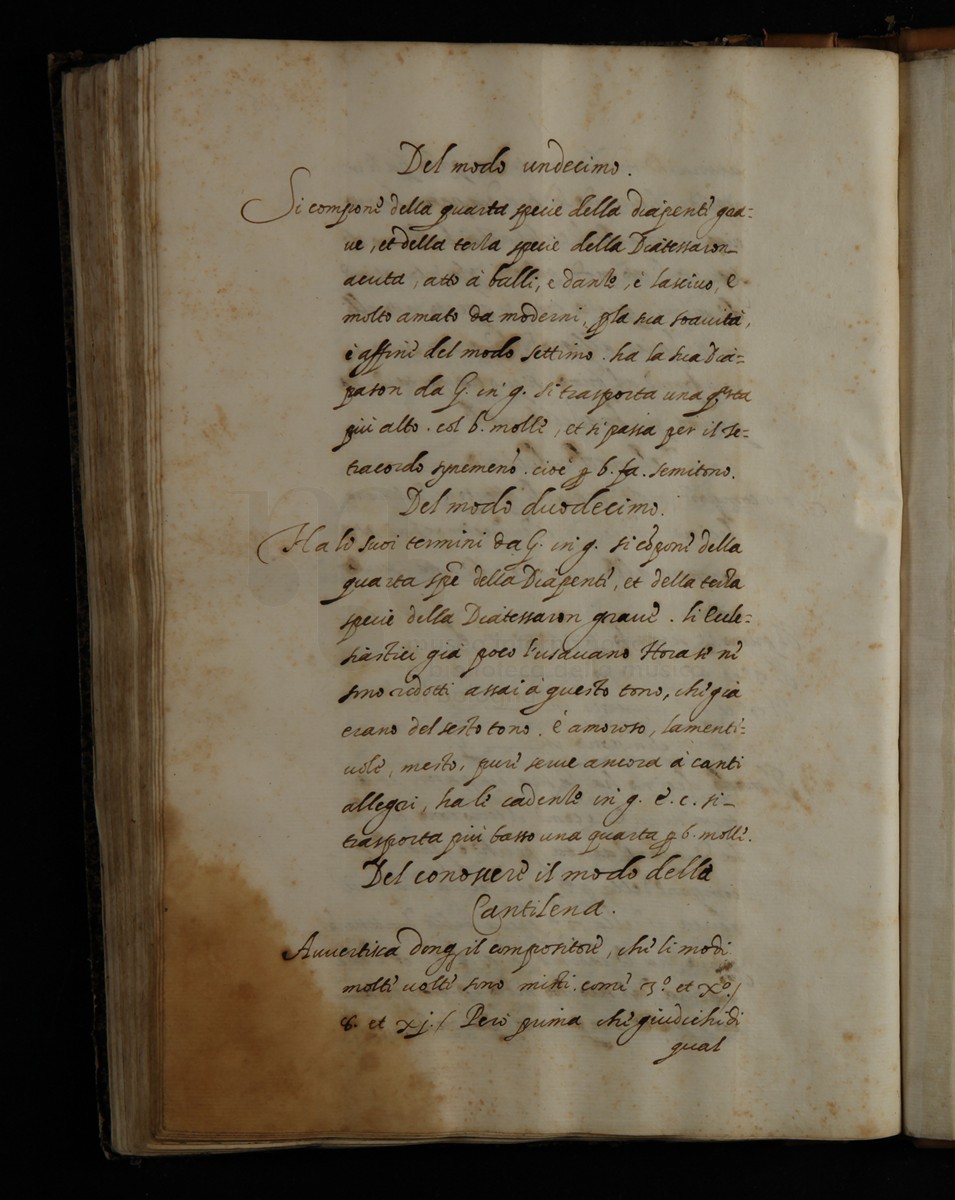 Del modo undecimo.
Si compone della quarta specie della diapente gra:
ue, et della terza specie della Diatessaron
acuta, atto à balli, e danze, è lasciuo, e
molto amato da moderni, p la sua soauità,
è affine del modo settimo. ha la sua Dia=
pason da G. in g. si trasporta una qrta
più alto. col b. molle, et si passa per il te=
tracordo synemeno. cioè p b. fa. semitono.
Del modo duodecimo.
Ha li suoi termini da G. in g. si cōpone della
quarta spe della Diapente, et della terza
specie della Diatessaron graue. li Eccle=
siastici già poco l'usauano Hora se ne
sono ridotti assai à questo tono, che già
erano del sesto tono. è amoroso, lamente:
uole, mesto, pure serue ancora à canti
allegri, ha le cadenze in g. e. c. si
trasporta più basso una quarta p b. molle.
Del conoscere il modo della
Cantilena.
Auuertisca donq il compositore, che li modi
molte uolte sono misti. come 3.º et Xº./
8. et xj./ Però prima che giudichi di
qual